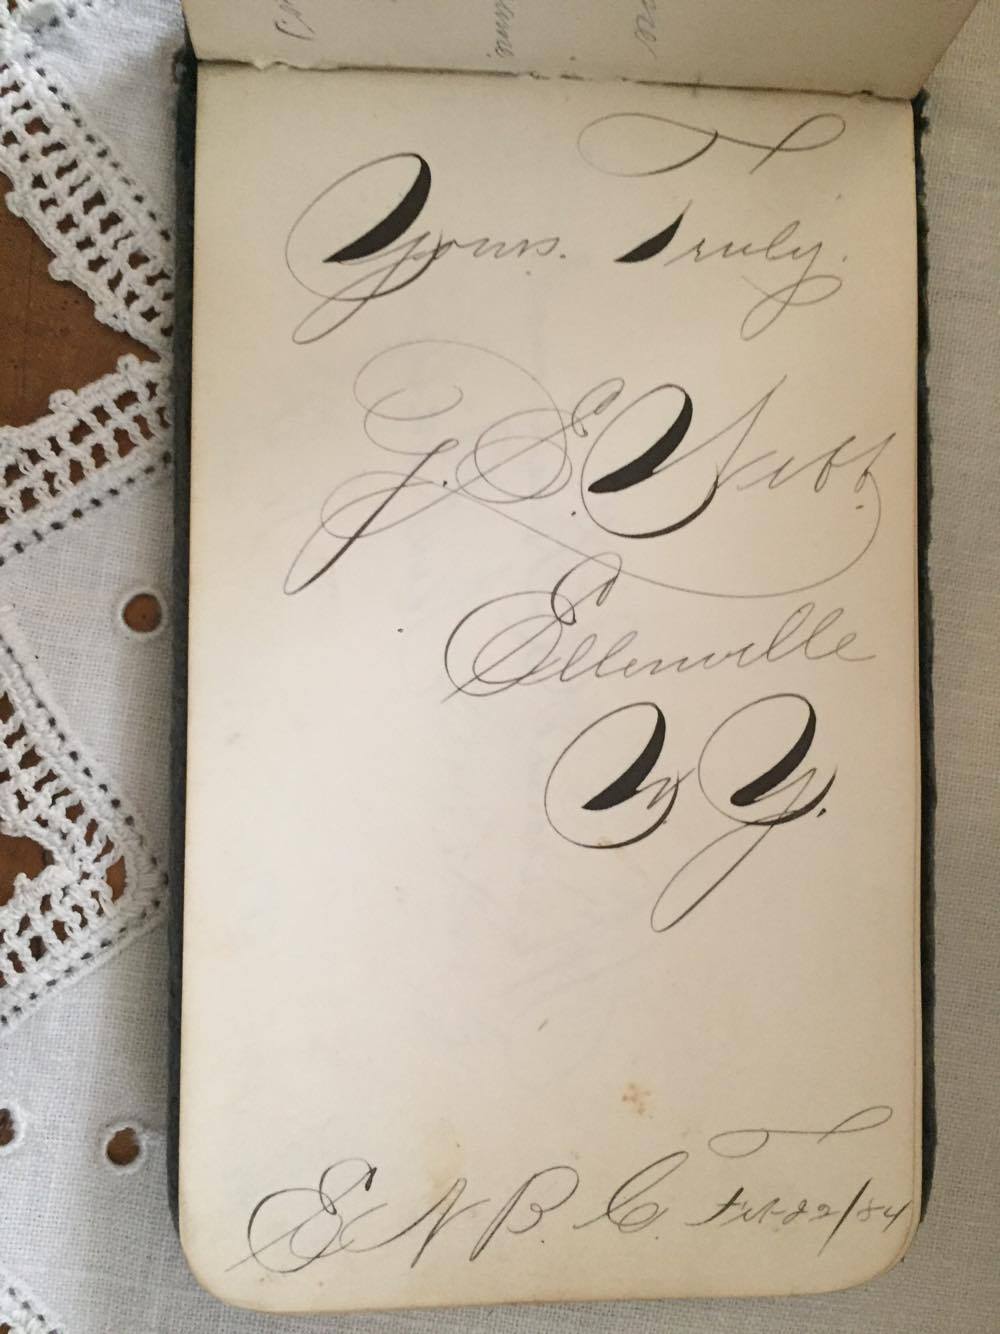 Yours. Truly.
Ellenville
N. Y.
E N B. C. Feb. 22/84